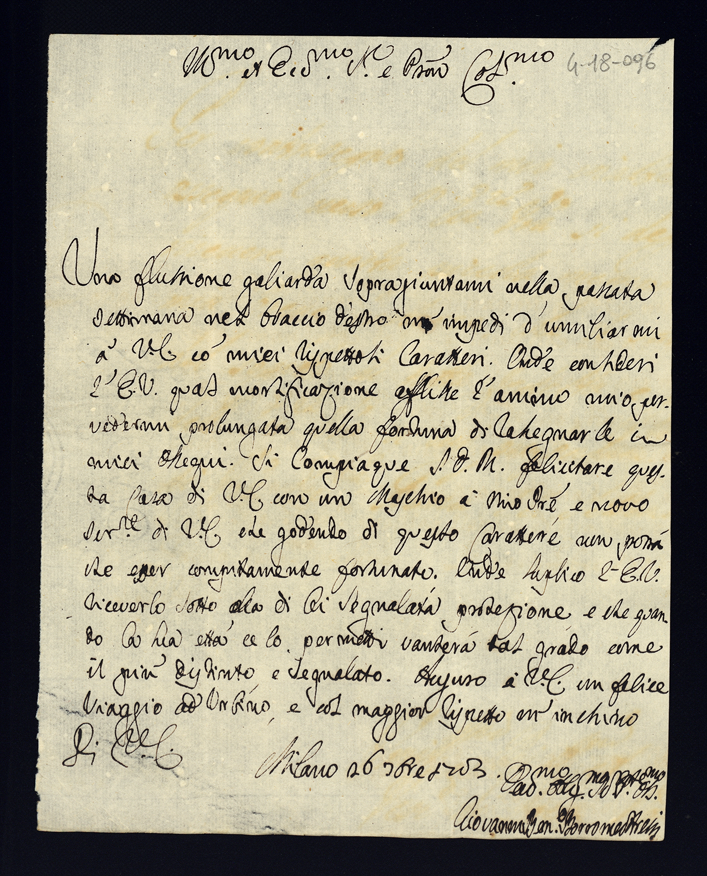 Ill.mo et Ecc.mo Sr. e Pron Col.mo
4-18-096
Una flussione galiarda sopragiuntami nella passata
settimana nel braccio destro m'impedì d'umiliarmi
à V.E. co' miei rispettosi Caratteri. Onde consideri
l'E.V. qual mortificazione afflisse l'animo mio per
vedermi prolungata quella fortuna di rassegnarle in
miei ossequi. Si Compiaque S.D.M. felicitare ques-
ta Casa di V.E. con un Maschio à mio Pré e novo
Ser.re di V.E. che godendo di questo Carattere non potrà
che esser compitamente fortunato. Onde suplico l'E.V.
riceverlo sotto alla di lei segnalata protezione e che quan
do la sua età ce lo permetti vanterà tal grado come
il più distinto e segnalato. Auguro à V.E. un felice
Viaggio ad Urbino, e col maggior rispetto m'inchino
Di V.E.
Milano 26
Giovanni Ben. Borromeo Aresi